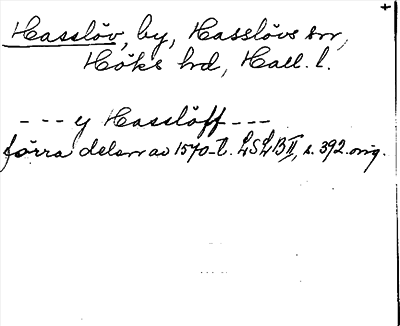 Hasslöv, by, Hasslövs sn,
Höks hd, Hall. l.
- - - y Hasslöff - - -
förra delen av 1570-t. LSLB II, s. 392. orig.